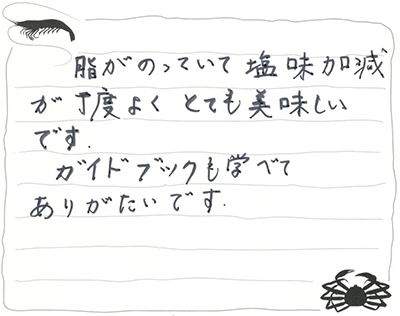 脂がのっていて塩味加減
が丁度よくとても美味しい
です.
ガイドブックも学べて
ありがたいです.